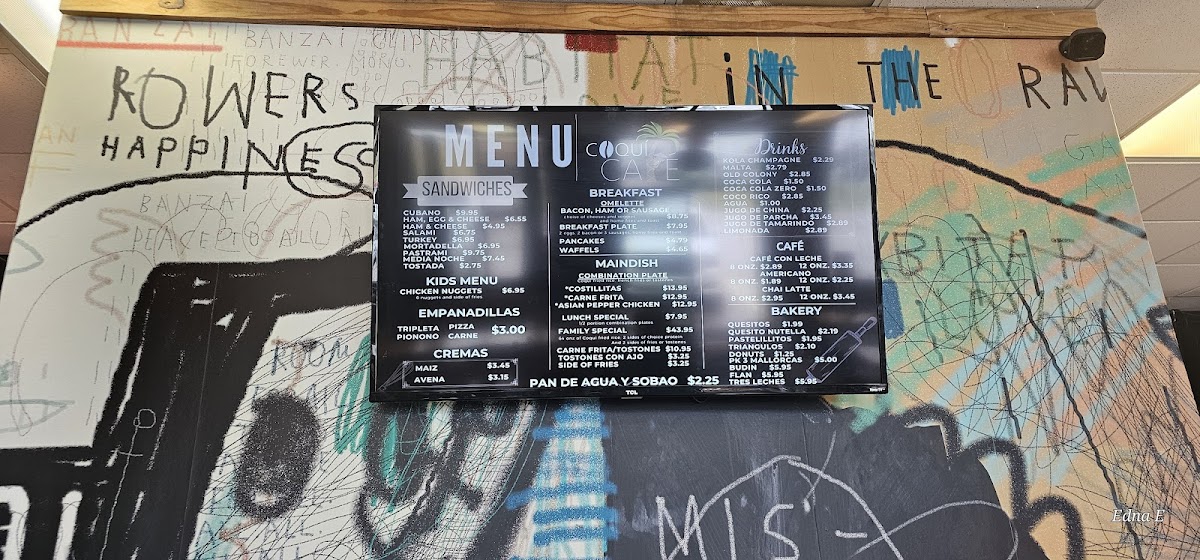 BANZAI
BANZAI CLIPART
FOREWER. MORO.
HABITAT
IN THE RAV
ROWERS
HAPPINESS
BANZAI
MENU
COQUÍ
CAFE
SANDWICHES
CUBANO $9.95
HAM, EGG & CHEESE $6.55
HAM & CHEESE $4.95
SALAMI $6.75
TURKEY $6.95
MORTADELLA $6.95
PASTRAMI $9.75
MEDIA NOCHE $7.45
TOSTADA $2.75
KIDS MENU
CHICKEN NUGGETS $6.95
6 nuggets and side of fries
EMPANADILLAS
TRIPLETA PIZZA
PIONONO CARNE $3.00
CREMAS
MAIZ $3.45
AVENA $3.15
BREAKFAST
OMELETTE
BACON, HAM OR SAUSAGE
$8.75
BREAKFAST PLATE $7.95
2 eggs, 2 bacon or 3 sausages, home fries and toast
PANCAKES $4.79
WAFFELS $4.65
MAINDISH
COMBINATION PLATE
*COSTILLITAS $13.95
*CARNE FRITA $12.95
*ASIAN PEPPER CHICKEN $12.95
LUNCH SPECIAL $7.95
1/2 portion combination plates
FAMILY SPECIAL $43.95
64 onz of Coqui fried rice, 2 sides of choice protein
And 2 sides of fries or tostones
CARNE FRITA/TOSTONES $10.95
TOSTONES CON AJO $3.25
SIDE OF FRIES $3.25
Drinks
KOLA CHAMPAGNE $2.29
MALTA $2.79
OLD COLONY $2.85
COCA COLA $1.50
COCA COLA ZERO $1.50
COCO RICO $2.85
AGUA $1.00
JUGO DE CHINA $2.25
JUGO DE PARCHA $3.45
JUGO DE TAMARINDO $2.89
LIMONADA $2.89
CAFÉ
CAFÉ CON LECHE
8 ONZ. $2.89 12 ONZ. $3.35
AMERICANO
8 ONZ. $1.89 12 ONZ. $2.25
CHAI LATTE
8 ONZ. $2.95 12 ONZ. $3.45
BAKERY
QUESITOS $1.99
QUESITO NUTELLA $2.19
PASTELILLITOS $1.95
TRIANGULOS $2.10
DONUTS $1.25
PK 3 MALLORCAS $5.00
BUDIN $5.95
FLAN $5.95
TRES LECHES $5.95
PAN DE AGUA Y SOBAO $2.25
TCL
ROOM
MIS
Edna E